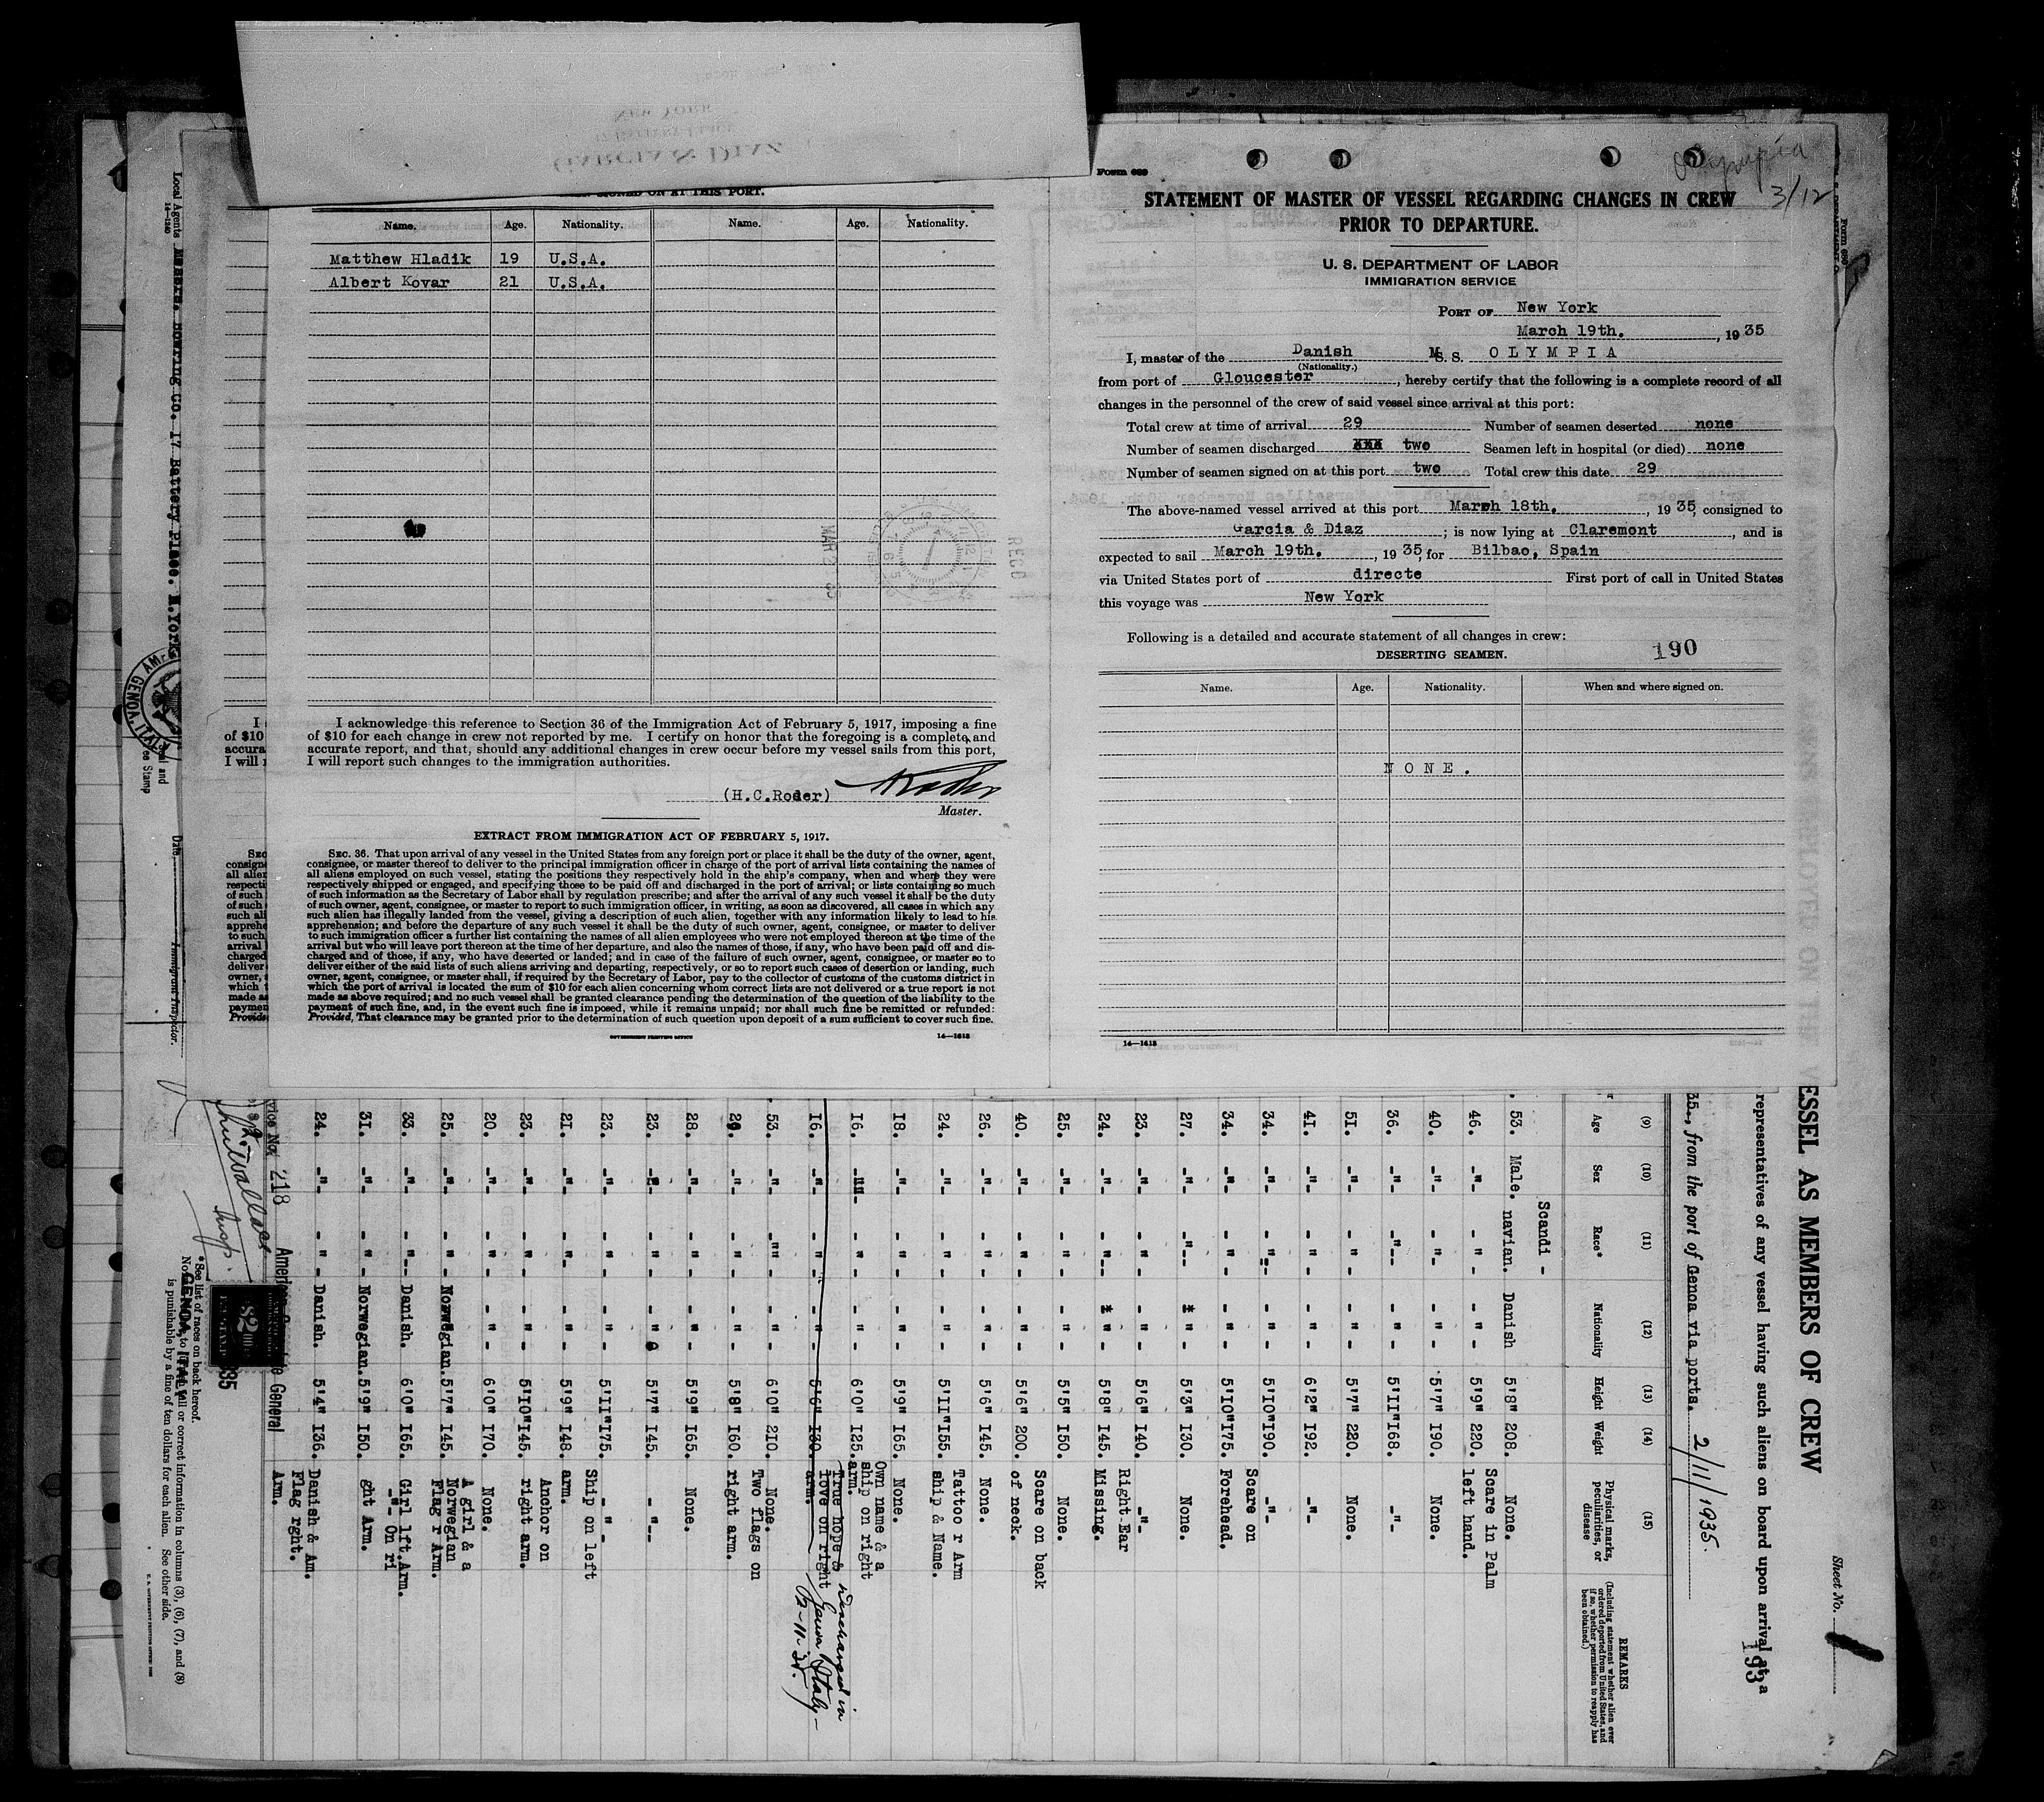 GARCIA & DIAZ
17 BATTERY PLACE
NEW YORK
SIGNED ON AT THIS PORT.
Name. Age. Nationality. Name. Age. Nationality.
Matthew Hladik 19 U.S.A.
Albert Kovar 21 U.S.A.
I acknowledge this reference to Section 36 of the Immigration Act of February 5, 1917, imposing a fine
of $10 for each change in crew not reported by me. I certify on honor that the foregoing is a complete and
accurate report, and that, should any additional changes in crew occur before my vessel sails from this port,
I will report such changes to the immigration authorities.
(H.C.Roder)
Master.
EXTRACT FROM IMMIGRATION ACT OF FEBRUARY 5, 1917.
SEC. 36. That upon arrival of any vessel in the United States from any foreign port or place it shall be the duty of the owner, agent,
consignee, or master thereof to deliver to the principal immigration officer in charge of the port of arrival lists containing the names of
all aliens employed on such vessel, stating the positions they respectively hold in the ship's company, when and where they were
respectively shipped or engaged, and specifying those to be paid off and discharged in the port of arrival; or lists containing so much
of such information as the Secretary of Labor shall by regulation prescribe; and after the arrival of any such vessel it shall be the duty
of such owner, agent, consignee, or master to report to such immigration officer, in writing, as soon as discovered, all cases in which any
such alien has illegally landed from the vessel, giving a description of such alien, together with any information likely to lead to his
apprehension; and before the departure of any such vessel it shall be the duty of such owner, agent, consignee, or master to deliver
to such immigration officer a further list containing the names of all alien employees who were not employed thereon at the time of the
arrival but who will leave port thereon at the time of her departure, and also the names of those, if any, who have been paid off and dis-
charged and of those, if any, who have deserted or landed; and in case of the failure of such owner, agent, consignee, or master so to
deliver either of the said lists of such aliens arriving and departing, respectively, or so to report such cases of desertion or landing, such
owner, agent, consignee, or master shall, if required by the Secretary of Labor, pay to the collector of customs of the customs district in
which the port of arrival is located the sum of $10 for each alien concerning whom correct lists are not delivered or a true report is not
made as above required; and no such vessel shall be granted clearance pending the determination of the question of the liability to the
payment of such fine, and, in the event such fine is imposed, while it remains unpaid; nor shall such fine be remitted or refunded:
Provided, That clearance may be granted prior to the determination of such question upon deposit of a sum sufficient to cover such fine.
GOVERNMENT PRINTING OFFICE 14—1613
Form 689
Olympia
3/12
STATEMENT OF MASTER OF VESSEL REGARDING CHANGES IN CREW
PRIOR TO DEPARTURE.
U. S. DEPARTMENT OF LABOR
IMMIGRATION SERVICE
PORT OF New York
March 19th. , 1935
I, master of the Danish M.S. OLYMPIA
(Nationality.)
from port of Gloucester , hereby certify that the following is a complete record of all
changes in the personnel of the crew of said vessel since arrival at this port:
Total crew at time of arrival 29 Number of seamen deserted none
Number of seamen discharged two Seamen left in hospital (or died) none
Number of seamen signed on at this port two Total crew this date 29
The above-named vessel arrived at this port March 18th. , 1935, consigned to
Garcia & Diaz ; is now lying at Claremont , and is
expected to sail March 19th. , 1935, for Bilbao, Spain
via United States port of directe First port of call in United States
this voyage was New York
Following is a detailed and accurate statement of all changes in crew:
DESERTING SEAMEN.
190
Name. Age. Nationality. When and where signed on.
NONE.
14—1613
Local Agents Messrs. Bowring Co. 17 Battery Place. N.York
14—1240
Date
Immigrant Inspector.
Sheet No.
193
ESSEL AS MEMBERS OF CREW
representatives of any vessel having such aliens on board upon arrival at a
35., from the port of Genoa via ports. 2/11/1935.
(9) (10) (11) (12) (13) (14) (15)
Age Sex Race* Nationality Height Weight Physical marks, peculiarities, or disease REMARKS
(Including statement whether alien ever ordered deported from United States, and if so, whether permission to reapply has been obtained.)
Scandi -
53. Male. navian. Danish 5'8" 208. None.
46. -"- - " - - " - 5'9" 220. Scare in Palm left hand.
40. -"- - "- - " - 5'7" 190. None.
36. -"- -"-- - " - 5'II" 168. -"-
51. -"- - " - - " - 5'7" 220. None.
41. -"- - " - - " - 6'2" 192. -"-
34. -"- - "-- - " - 5'10" 190. -"-
34. -"- - " - - " - 5'10" 175. Scare on Forehead.
27. -"- -"-- - " - 5'3" 130. None.
23. -"- - " - - " - 5'6" 140. -"-
24. -"- - "-- - " - 5'8" 145. Right Ear Missing.
25. -"- - " - - " - 5'5" 150. None.
40. -"- - " - - " - 5'6" 200. Scare on back of neck.
26. -"- - " - - " - 5'6" 145. None.
24. -"- - " - - " - 5'II" 155. Tattoo r Arm ship & Name.
18. -"- - " - - " - 5'9" 165. None.
16. -"- - " - - " - 6'0" 125. Own name & a ship on right arm.
16. -"- - " - - " - 5'6" 130. True hope & love on right arm. Descharged in Genua Italy - 2-11-35.
53. -"- - "" - " - 6'0" 210. None.
29. -"- - " - - " - 5'8" 160. Two flags on right arm.
28. -"- - " - - " - 5'9" 165. None.
23. -"- - " - - " - 5'7" 145. - "--
23. -"- - " - - " - 5'II" 175. - " -
21. -"- - "- - " - 5'9" 148. Ship on left arm.
23. -"- - " - - " - 5'10" 145. Anchor on right arm.
20. -"- - " - - " - 6'0" 170. None.
25. -"- - " - Norwegian. 5'7" 145. A girl & a Norwegian Flag r Arm.
33. -"- - "-- Danish. 6'0" 165. Girl lft.Arm.
31. -"- - " - Norwegian. 5'9" 150. -"- On ri ght Arm.
24. -"- - " - Danish. 5'4" 136. Danish & Am. Flag rght. Arm.
vice No. 218
American Consulate General
GENOA, ITALY
$2.00
* See list of races on back hereof.
is punishable by a fine of ten dollars for each alien. See other side.